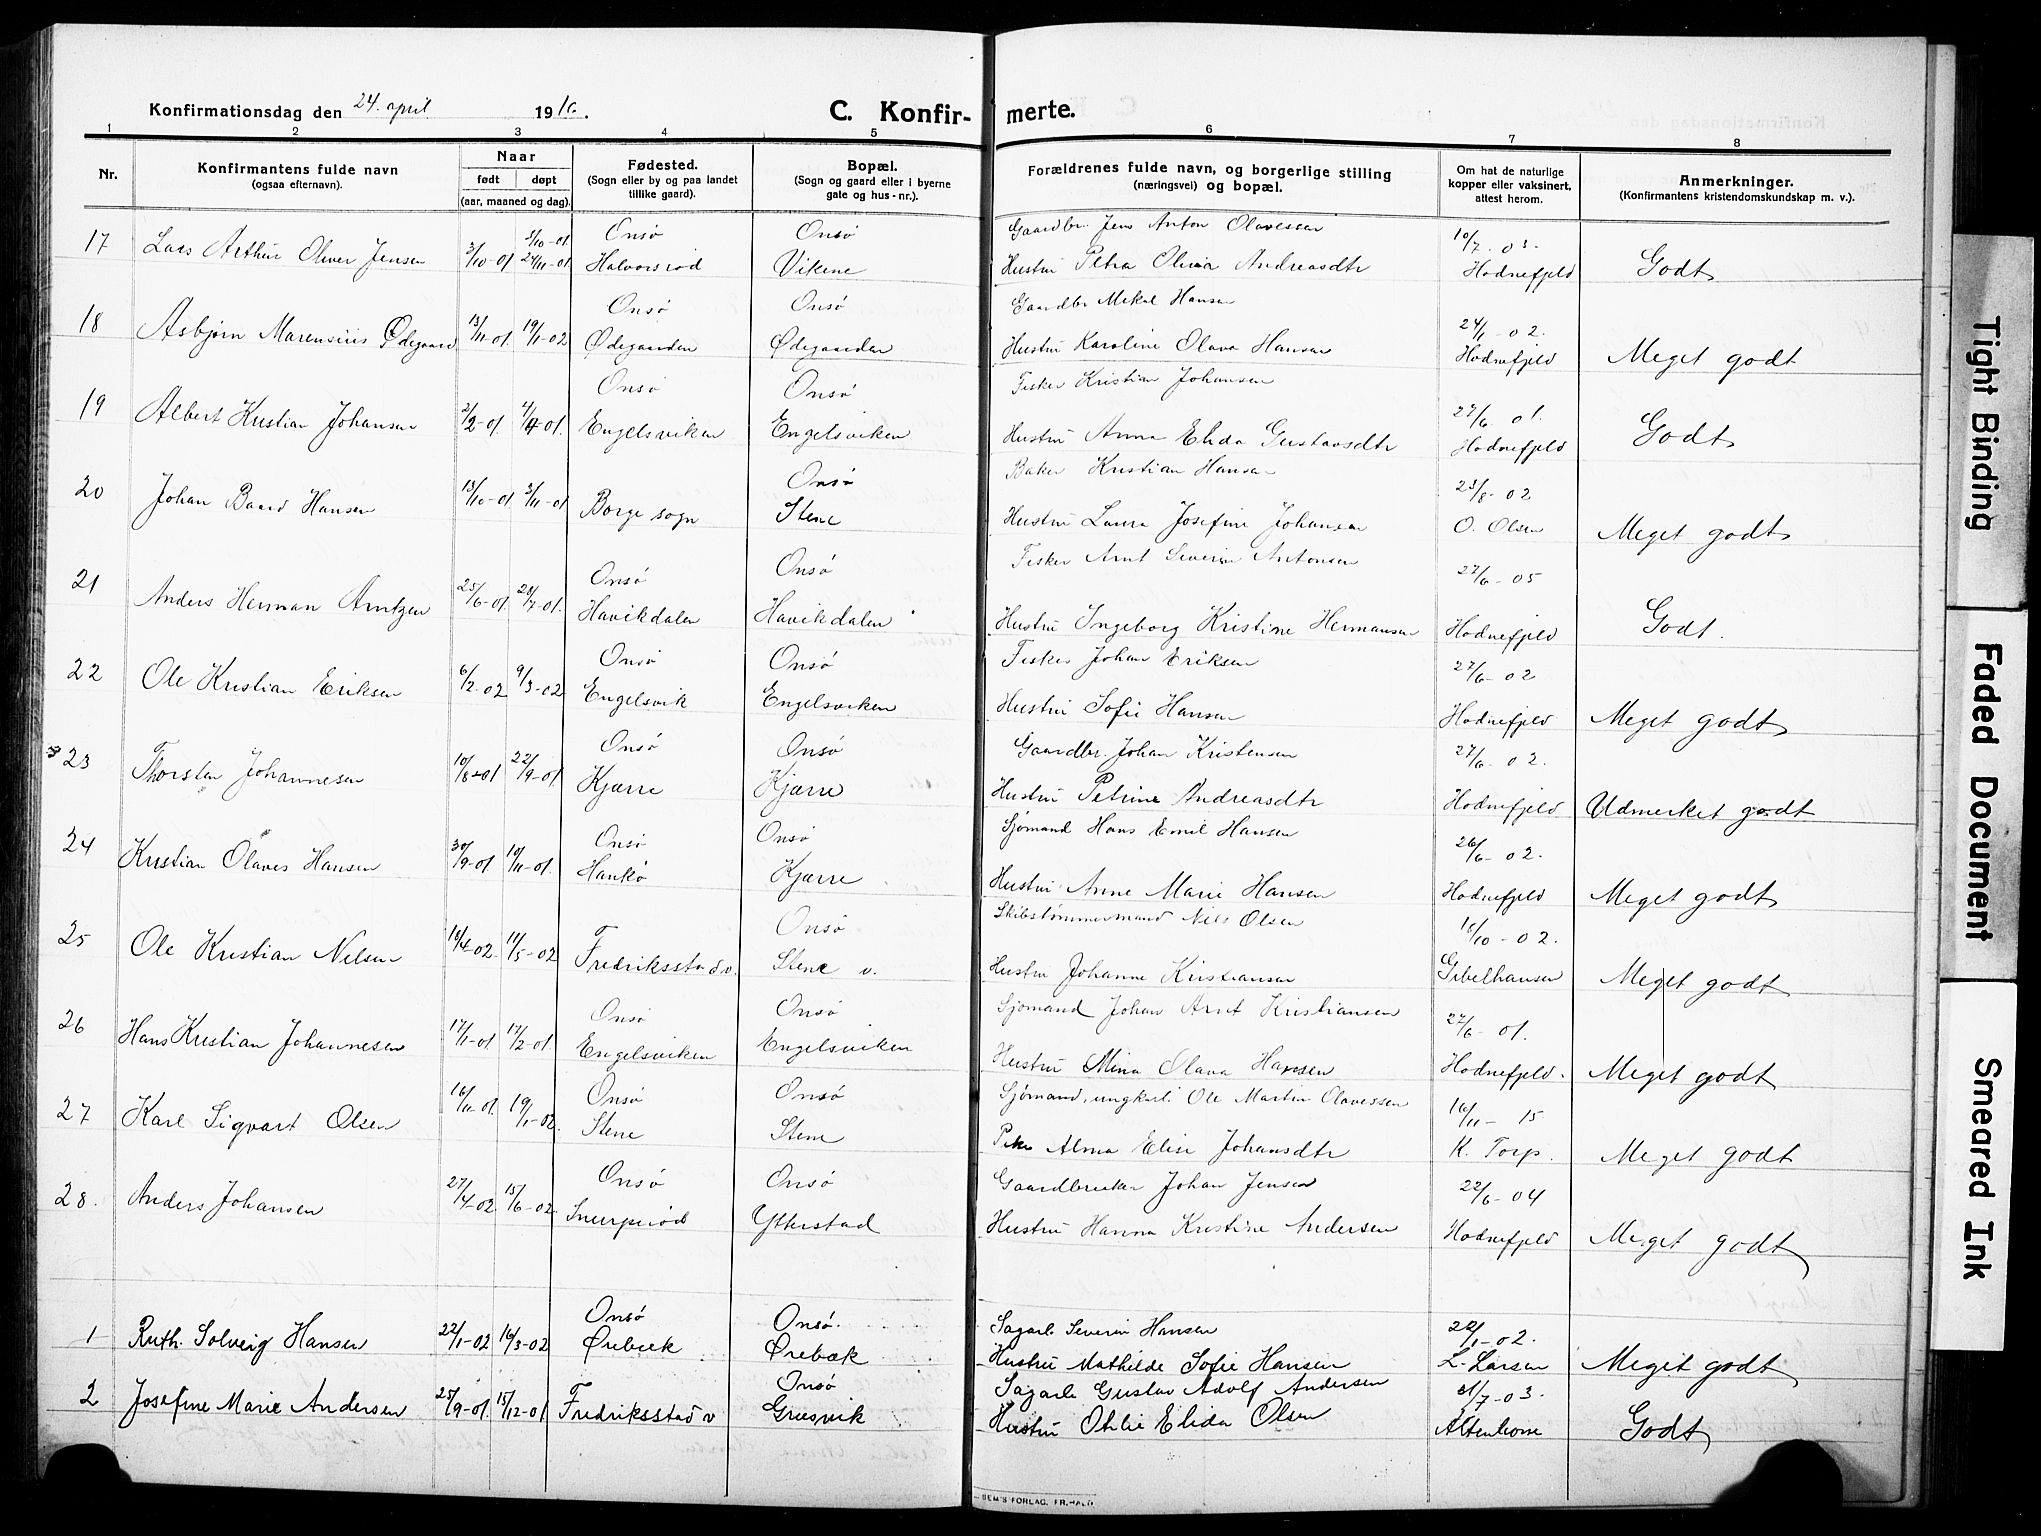 Konfirmationsdag den 24. april 1916. C. Konfir-merte.
1 2 3 4 5 6 7 8
Nr. Konfirmantens fulde navn (ogsaa efternavn). Naar født døpt (aar, maaned og dag). Fødested. (Sogn eller by og paa landet tillike gaard). Bopæl. (Sogn og gaard eller i byerne gate og hus-nr.). Forældrenes fulde navn, og borgerlige stilling (næringsvei) og bopæl. Om hat de naturlige kopper eller vaksinert, attest herom. Anmerkninger. (Konfirmantens kristendomskundskap m. v.).
5/10-01. Onsø Onsø Gaardbr. Jens Anton Olavessen 10/7-03.
17 Lars Arthur Oliver Jensen 3/10-01 24/11-01. Halvorsrød Vikene Hustru Petra Olivia Andreasdtr Hodnefjeld Godt
Onsø Onsø Gaardbr Mikal Hansen 24/1-02.
18 Asbjørn Marensius Ødegaard 13/11-01. 19/1-02 Ødegaarden Ødegaarden Hustru Karoline Olava Hansen Hodnefjeld Meget godt
Onsø Onsø Fisker Kristian Johansen 27/6 01.
19 Albert Kristian Johansen 2/2-01. 4/4-01. Engelsviken Engelsviken Hustru Anna Elida Gustavsdtr Hodnefjeld Godt
Onsø Baker Kristian Hansen 23/8-02
20 Johan Baard Hansen 13/10-01. 3/11-01. Borge sogn Stene Hustru Laura Josefine Johansen O. Olsen Meget godt
Onsø Onsø Fisker Arnt Severin Antonsen 27/6-05
21 Anders Herman Arntzen 25/6-01. 28/7-01. Havikdalen Havikdalen Hustru Ingeborg Kristine Hermansen Hodnefjeld Godt.
Onsø Onsø Fisker Johan Eriksen 27/6-02
22 Ole Kristian Eriksen 6/2-02 9/3-02 Engelsvik Engelsviken Hustru Sofie Hansen Hodnefjeld Meget godt
Onsø Onsø Gaardbr. Johan Kristensen 27/6-02.
23 Thorsten Johannesen 10/8-01 22/9-01. Kjærre Kjærre Hustru Petrine Andreasdtr Hodnefjeld Udmerket godt
Onsø Onsø Sjømand Hans Emil Hansen 26/6-02.
24 Kristian Olaves Hansen 30/9-01. 10/11-01. Hankø Kjærre Hustru Anne Marie Hansen Hodnefjeld Meget godt
Onsø Skibstømmermand Nils Olsen 15/10-02.
25 Ole Kristian Nilsen 16/4-02. 11/5-02 Fredriksstad v. Stene v. Hustru Johanne Kristiansen Gibelhausen Meget godt
Onsø Onsø Sjømand Johan Arnt Kristiansen 27/6-01.
26 Hans Kristian Johannesen 17/1-01. 17/2-01. Engelsviken Engelsviken Hustru Mina Olava Hansen Hodnefjeld. Meget godt
Onsø Onsø Sjømand, ungkarl. Ole Martin Olavessen 16/11-15
27 Karl Sigvart Olsen 16/11-01. 19/1-02. Stene Stene Pike Alma Elise Johansdtr K. Torp. Meget godt
Onsø Onsø Gaardbruker Johan Jensen 22/6-04
28. Anders Johansen 27/4-02 15/6-02. Snurperød Ytterstad Hustru Hanna Kristine Andersen Hodnefjeld Meget godt
Onsø Onsø. Sagarb. Severin Hansen 22/1-02.
1 Ruth Solveig Hansen 22/1-02 16/3-02 Ørebæk Ørebæk Hustru Mathilde Sofie Hansen L. Larsen Meget godt
Onsø Sagarb Gustav Adolf Andersen 21/7-03.
2 Josefine Marie Andersen 25/9-01. 15/12-01 Fredriksstad v Gresvik Hustru Othlie Elida Olsen Godt
SEM'S FORLAG, FR.HALD
Tight Binding
Faded Document
Smeared Ink